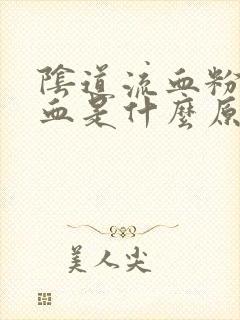 陰道流血粉
血是什麼原
美人尖